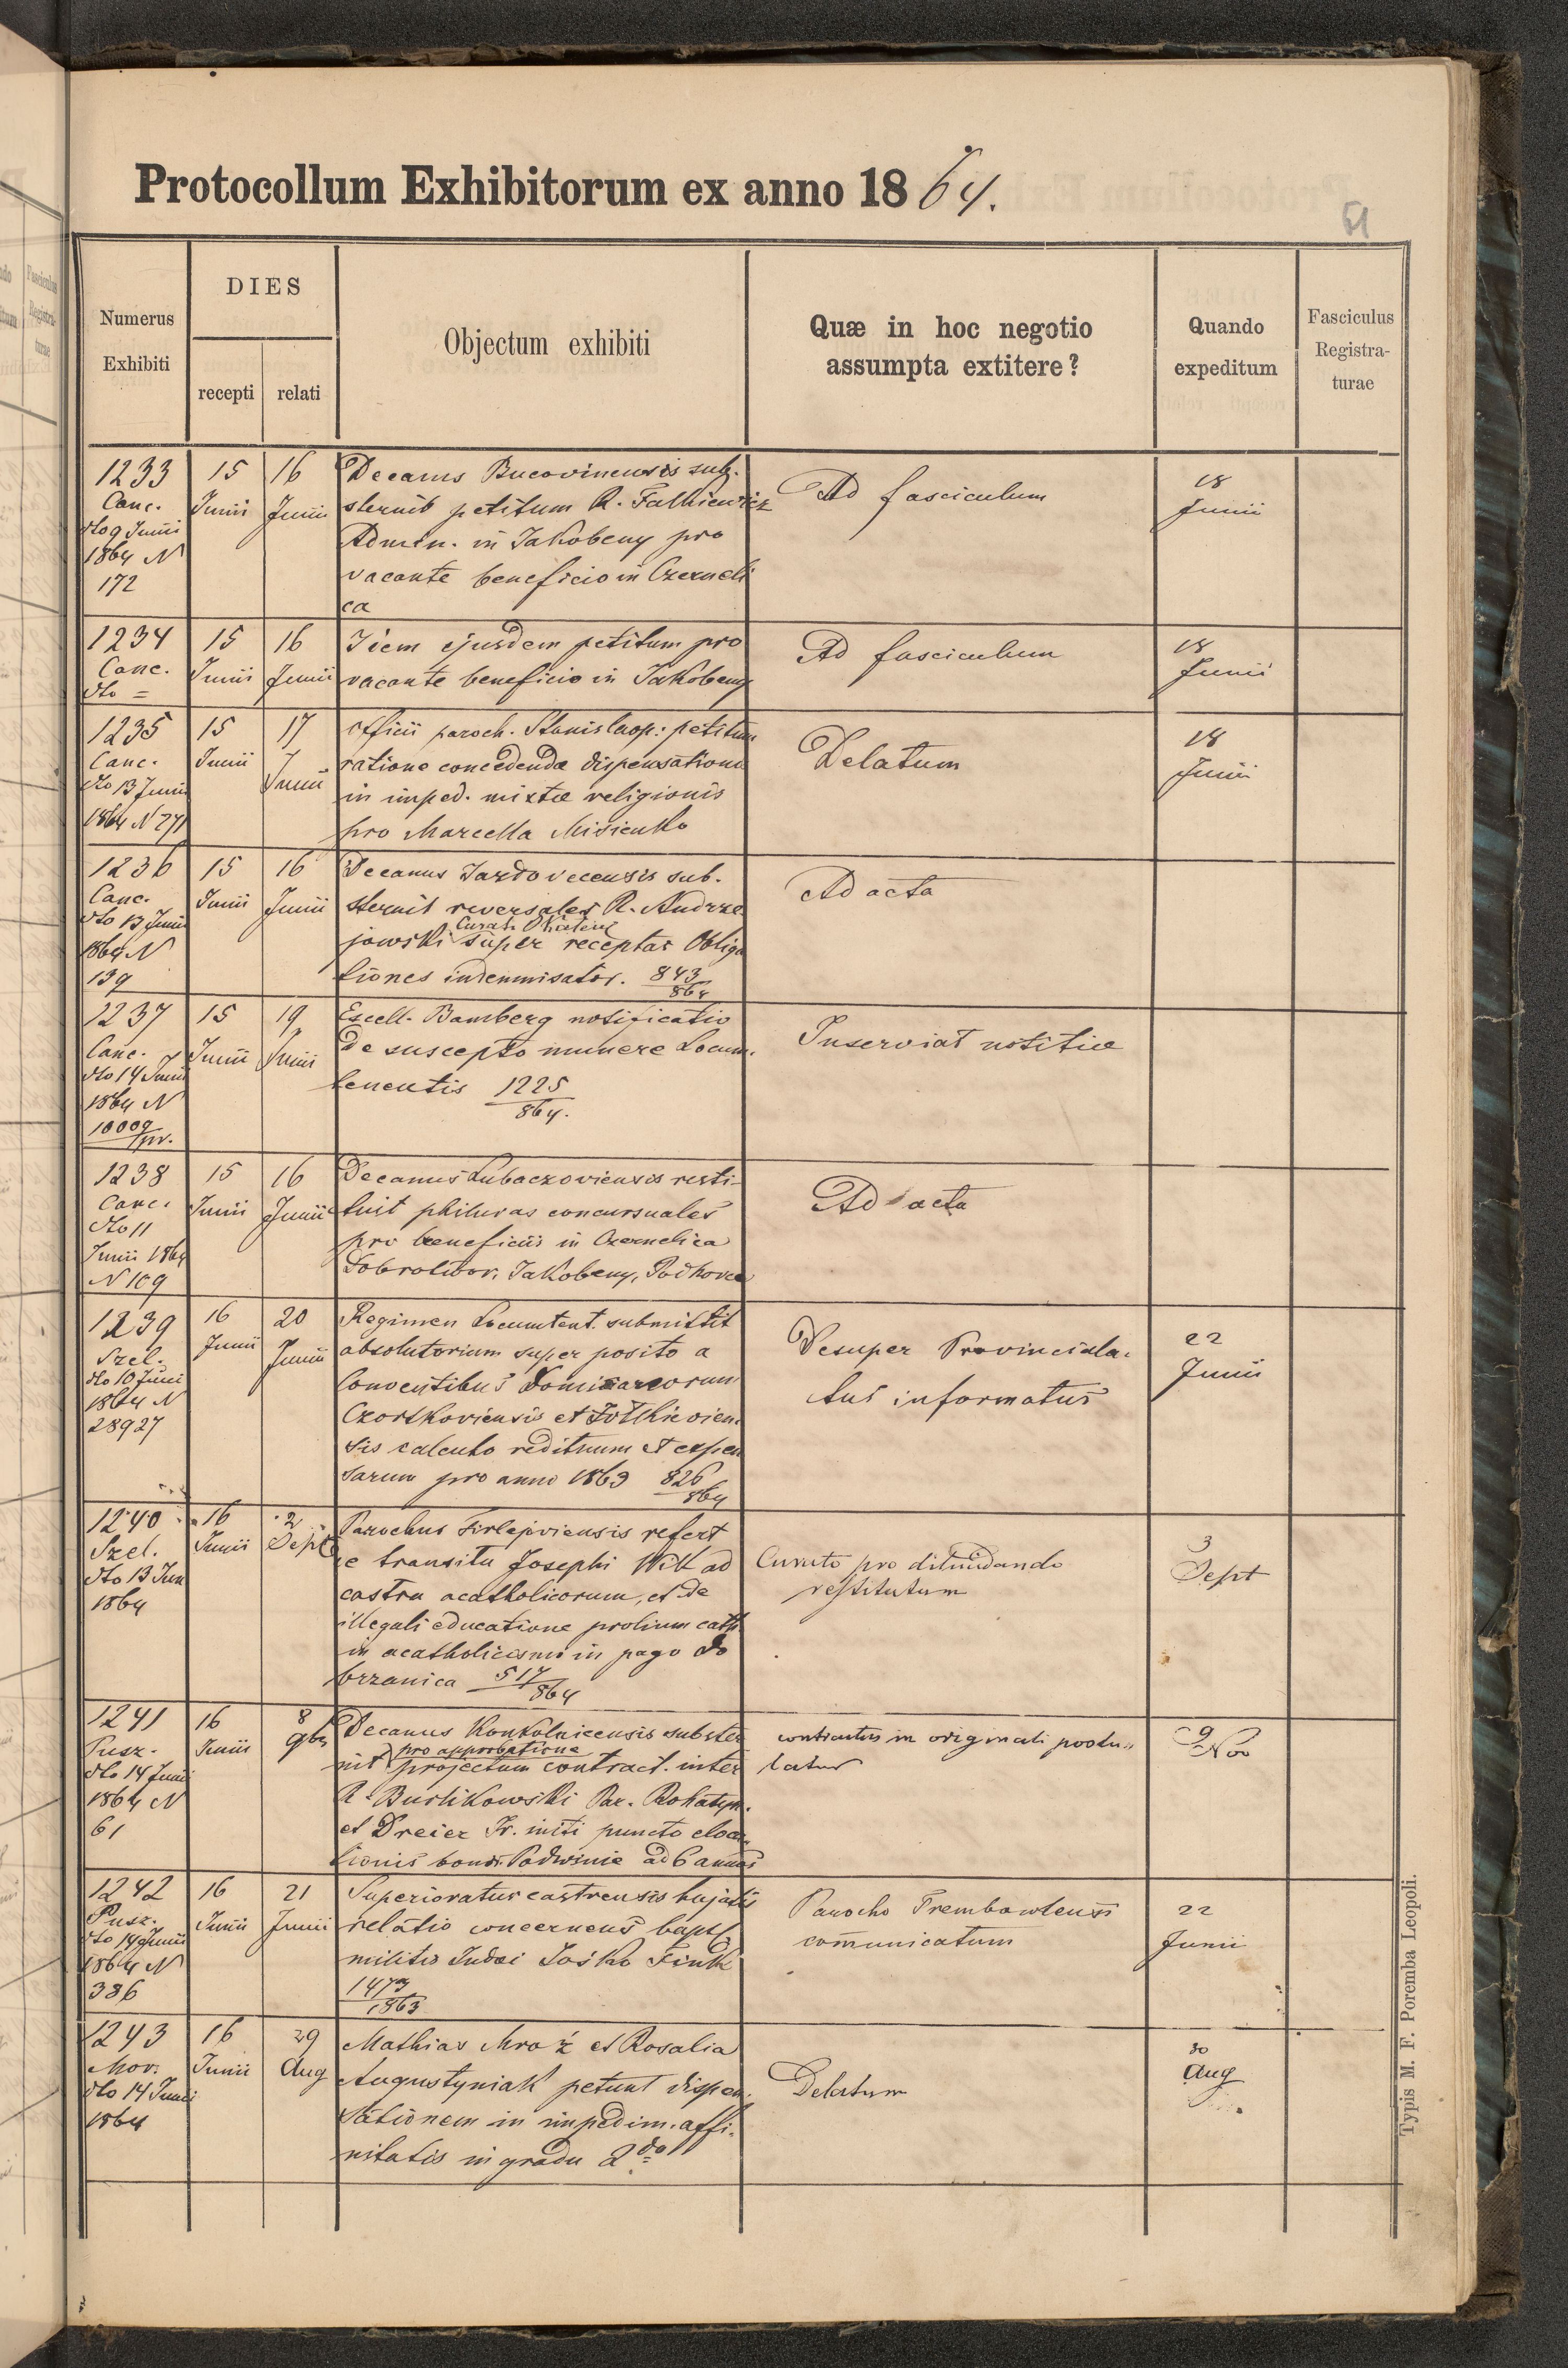 Protocollum Exhibitorum ex anno 1864.
51
Numerus
Exhibiti
DIES
recepti
relati
Objectum exhibiti
Quæ in hoc negotio
assumpta extitere?
Quando
expeditum
Fasciculus
Registra-
turae
1233
Canc.
dto 9 Junii
1864 N
172
15
Junii
16
Junii
Decanus Bucovinensis sub-
sternit petitum R. Falkiewicz
Admin. in Jakobeny pro
vacante beneficio in Czerneli
ca
Ad fasciculum
18
Junii
1234
Canc.
dto =
15
Junii
16
Junii
Idem ejusdem petitum pro
vacante beneficio in Jakobeny
Ad fasciculum
18
Junii
1235
Canc.
dto 13 Junii
1864 N 271
15
Junii
17
Junii
Officii paroch. Stanislaop: petitum
ratione concedendæ dispensationis
in imped. mixtæ religionis
pro Marcella Misienko
Delatum
18
Junii
1236
Canc.
dto 13 Junii
1864 N
139
15
Junii
16
Junii
Decanus Jazdovecensis sub-
sternit reversales R. Andrze
Curati
jowski super receptas Obliga
tiones indemnisator. 843
864
Ad acta
1237
Canc.
dto 14 Junii
1864 N
10009
/pr.
15
Junii
19
Junii
Excell. Bamberg notificatio
de suscepto munere Locum-
tenentis 1225
864.
Inserviat notitiæ
1238
Canc.
dto 11
Junii 1864
N 109
15
Junii
16
Junii
Decanus Lubaczoviensis resti-
tuit philuras concursuales
pro beneficiis in Czernelica
Dobrotwor, Jakobeny, Podhorce
Ad acta
1239
Szel.
dto 10 Juni
1864 N
28927
16
Junii
20
Junii
Regimen Locumtent. submittit
absolutorium super posito a
Conventibus Dominicanorum
Czortkoviensis et Żołkievien-
sis calculo redituum et expen
sarum pro anno 1863 826
864
Desuper Provinciala-
tus informatus
22
Junii
1240
Szel.
dto 13 Jun
1864
16
Junii
2
Sept
Parochus Firlejoviensis refert
de transitu Josephi Wilk ad
castra acatholicorum, et de
illegali educatione prolium cath
in acatholicismo in pago Do
brzanica 517
864
Curato pro dilucidando
restitutum
3
Sept
1241
Pusz.
dto 14 Junii
1864 N
61
16
Junii
8
9br
Decanus Konkolnicensis subster
pro approbatione
nit projectum contract. inter
R. Burlikowski Par. Rohatyn.
et Dreier Fr. initi puncto eloca
tionis bonor. Podwinie ad 6 annos
contractus in originali postu-
latur
9
Nov
1242
Pusz.
dto 14 Junii
1864 N
386
16
Junii
21
Junii
Superioratus castrensis hujatis
relatio concernens bapt.
militis Judæi Jośko Fink
1473
1863
Parocho Trembowlensi
communicatum
22
Junii
1243
Mor.
dto 14 Junii
1864
16
Junii
29
Aug
Mathias Mroź et Rosalia
Augustyniak petunt dispen-
sationem in impedim. affi-
nitatis in gradu 2do
Delatum
30
Aug
Typis M. F. Poremba Leopoli.